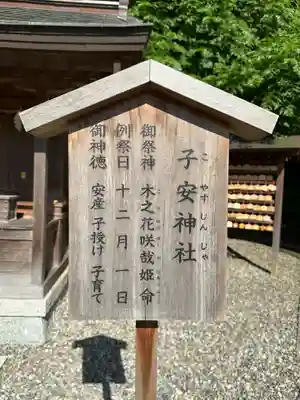 子安神社
こ やす じん じゃ
御祭神 木之花咲哉姫命
例祭日 十二月一日
御神徳 安産 子授け 子育て